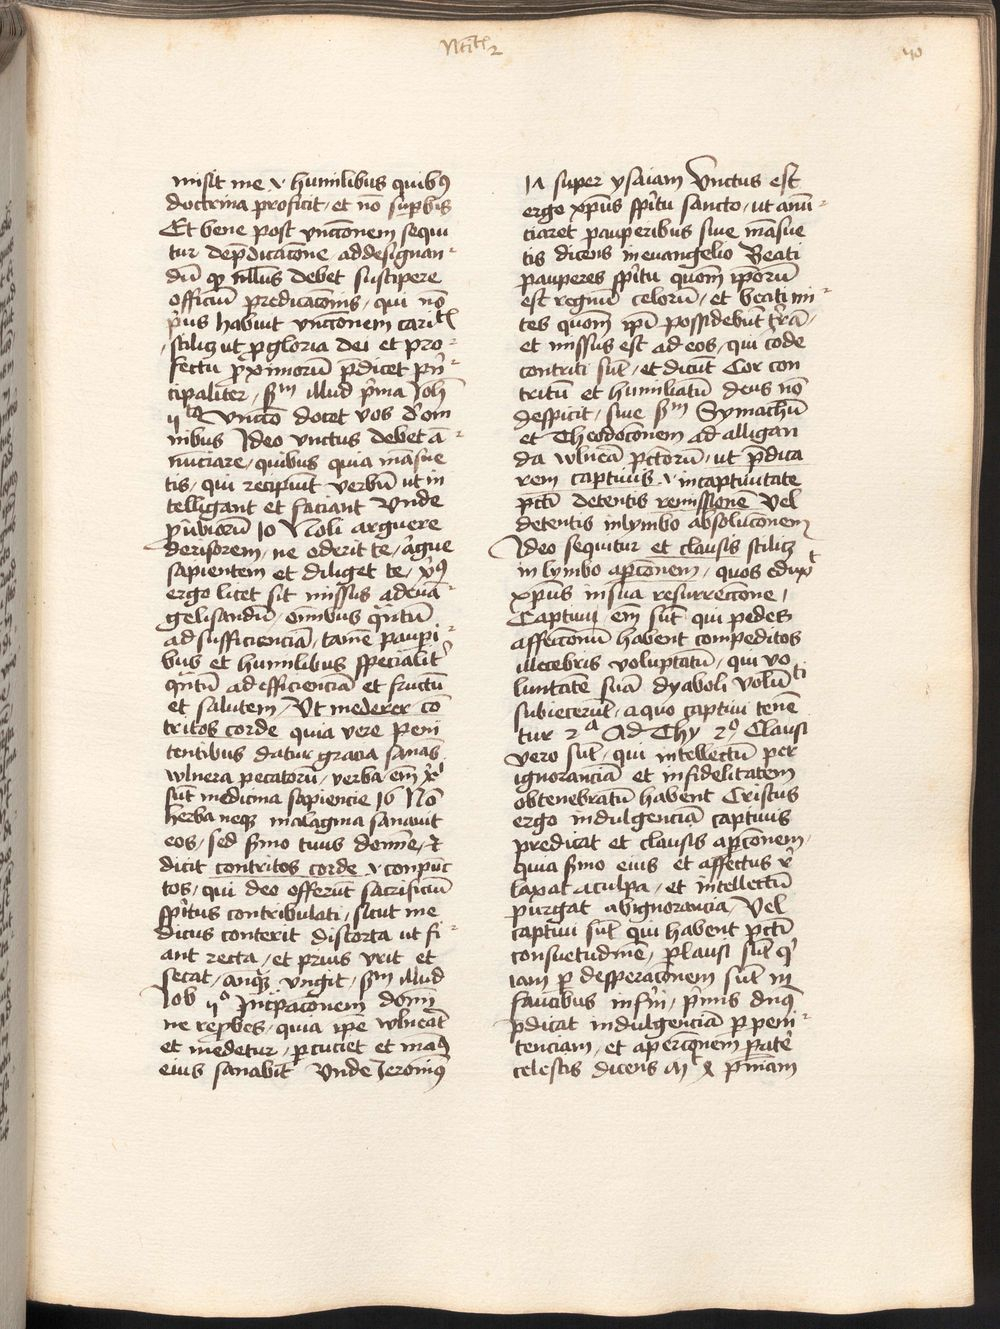 Ntītꝭ 2
40
misit me v humilibus quibꝰ
doctrina proficit / et nō suꝑbis
Et bene post vnccōnem sequi
tur dep̄dicacōne / addesignan-
dū qꝫ nullus debet suscipere
officiū predicacōnis / qui nō
pͥus habuit vnccōnem caritꝭ
/ scilicꝫ ut ꝓ gloria dei et pro-
fectu ꝓximorū p̄dicet pͥn-
cipaliter / sm illud pͥma Joh̄
ij ta Vnccō docet vos de om
nibus Ideo vnctus debet ā-
nūciare / quibus quia māsue
tis / qui recipiūt verbū ut in
telligant et faciant Vnde
ꝓubiorū 10 Noli arguere
derisorem / ne oderit te / argue
sapientem et diliget te / xꝰ
ergo licet sit missus adeuā-
gelisandū / omībus qͣntū
ad sufficienciā / tamē pauꝑi-
bus et humilibus specialitͬ
qͣntū ad efficienciā et fructū
et salutem / Vt mederer cō
tritos corde quia vere peni
tentibus datur gracia sanās
wlnera pecatorū / verba em̄ xͥ
sūt medicina sapiencie 16 Nō
herba neqꝫ malagma sanauit
eos / sed sͬmo tuus domīe / ⁊
dicit contritos corde v conpūc
tos / qui deo offerūt sacrificiū
spͥtus contribulati / sicut me
dicus conterit distorta ut fi-
ant recta / et prius vrit et
secat / anqͣꝫ vngit / sm illud
Job ijº Increpacōnem domī
ne repbes / quia ipē wlnerat
et medetur / ꝑcuciet et manꝰ
eius sanabūt Vnde Jeronimꝰ
in super ysaiam Vnctus est
ergo xp̄us spͥtu sancto / ut anū-
ciaret pauperibus siue māsue
tis dicens in euangelio Beati
pauperes spͥtu quom̄ ipōrū
est regnū celorū / et beati mi-
tes quom̄ ipi possidebūt tͬrā /
et missus est ad eos / qui corde
contriti sūt / et dicūt Cor con
tritū et humiliatū deus nō
despicit / siue sm Symachū
et Theodocōnem ad alligan
da wlnera pctorū / ut p̄dica
rem captiuis v in captiuitate
pcti detentis remissionē Vel
detentis in lymbo absolucōnem
Ideo sequitur et clausis scilicꝫ
in lymbo apcōnem / quos eduxt
xp̄us in sua resurreccōne /
Captiui em̄ sūt qui pedes
affeccōnū habent compeditos
illecebris voluptatū / qui vo
luntatē suā dyaboli volūti
subiecerūt / a quo captiui tenē
tur 2ª Ad Thy 2º Clausi
vero sūt / qui intellectū per
ignoranciā et infidelitatem
obtenebratū habent Cristus
ergo indulgenciā captiuis
predicat et clausis apcōnem /
quia sͬmo eius et affectus re
laxat a culpa / et intellectū
purgat ab ignorancia / Vel
captiui sūt qui habent pcti
consuetudinē / ꝑ clausi sūt qͥ
iam ꝑ desperacōnem sūt in
faucibus infͬni / pͥmis dnqꝫ
p̄dicat indulgenciā ꝑ peni-
tenciam / et apercōnem p̄ate
celestis dicens m x pn̄iam